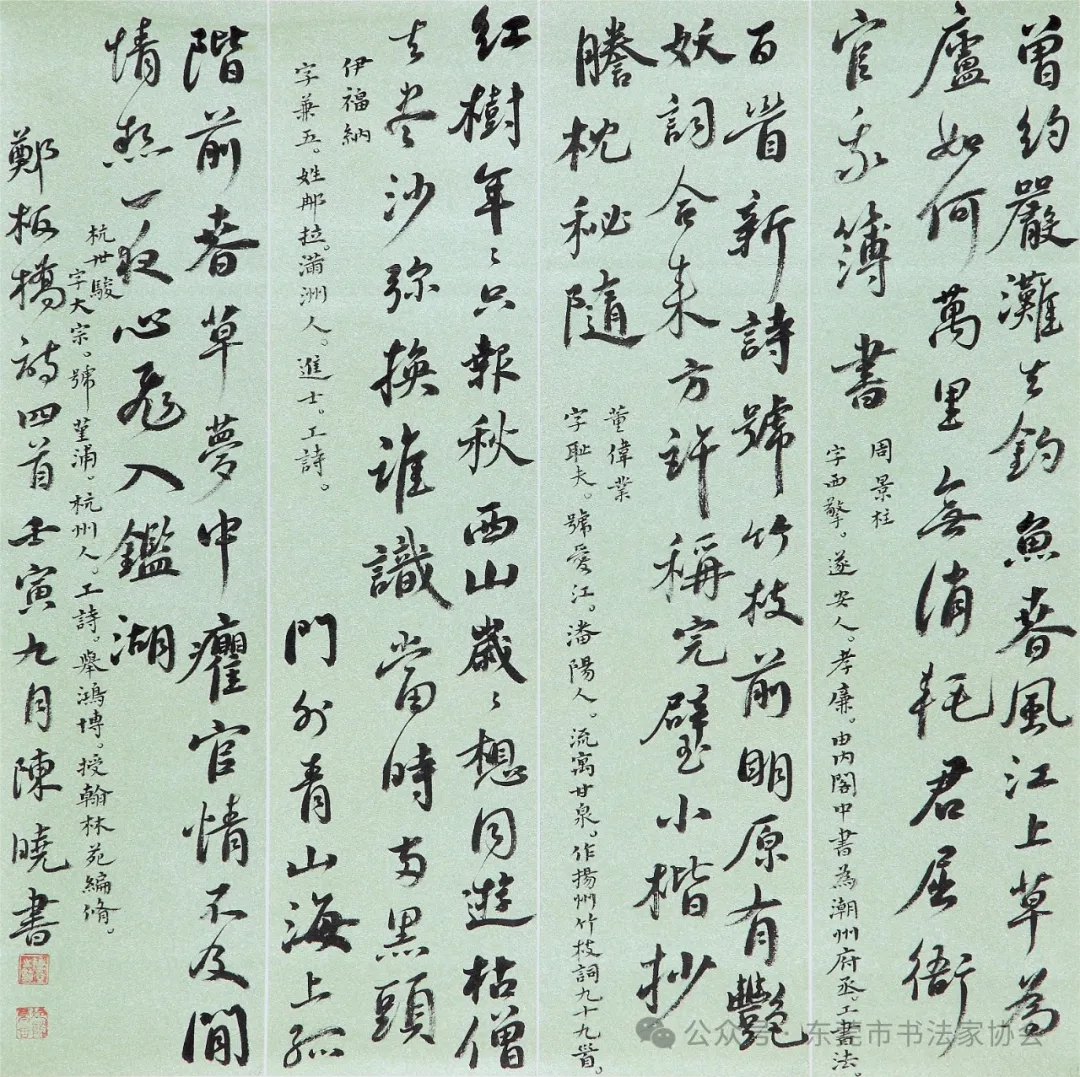 曾約嚴灘去釣魚春風江上草為
廬如何萬里無消耗君屈衙
官我簿書
周景柱
字西擎。遂安人。孝廉。由內閣中書為潮州府丞。工書法。
百首新詩號竹枝前明原有豔
妖詞合來方許稱完璧小楷抄
謄枕秘隨
董偉業
字耻夫。號愛江。瀋陽人。流寓甘泉。作揚州竹枝詞九十九首。
紅樹年々只報秋西山歲々想同遊枯僧
去盡沙彌換誰識當時兩黑頭
伊福納
字兼五。姓那拉。滿洲人。進士。工詩。
門外青山海上孤
階前春草夢中癯官情不及閒
情熱一夜心飛入鑑湖
杭世駿
字大宗。號堇浦。杭州人。工詩。舉鴻博。授翰林苑編脩。
鄭板橋詩四首壬寅九月陳曉書
公众号·东莞市书法家协会